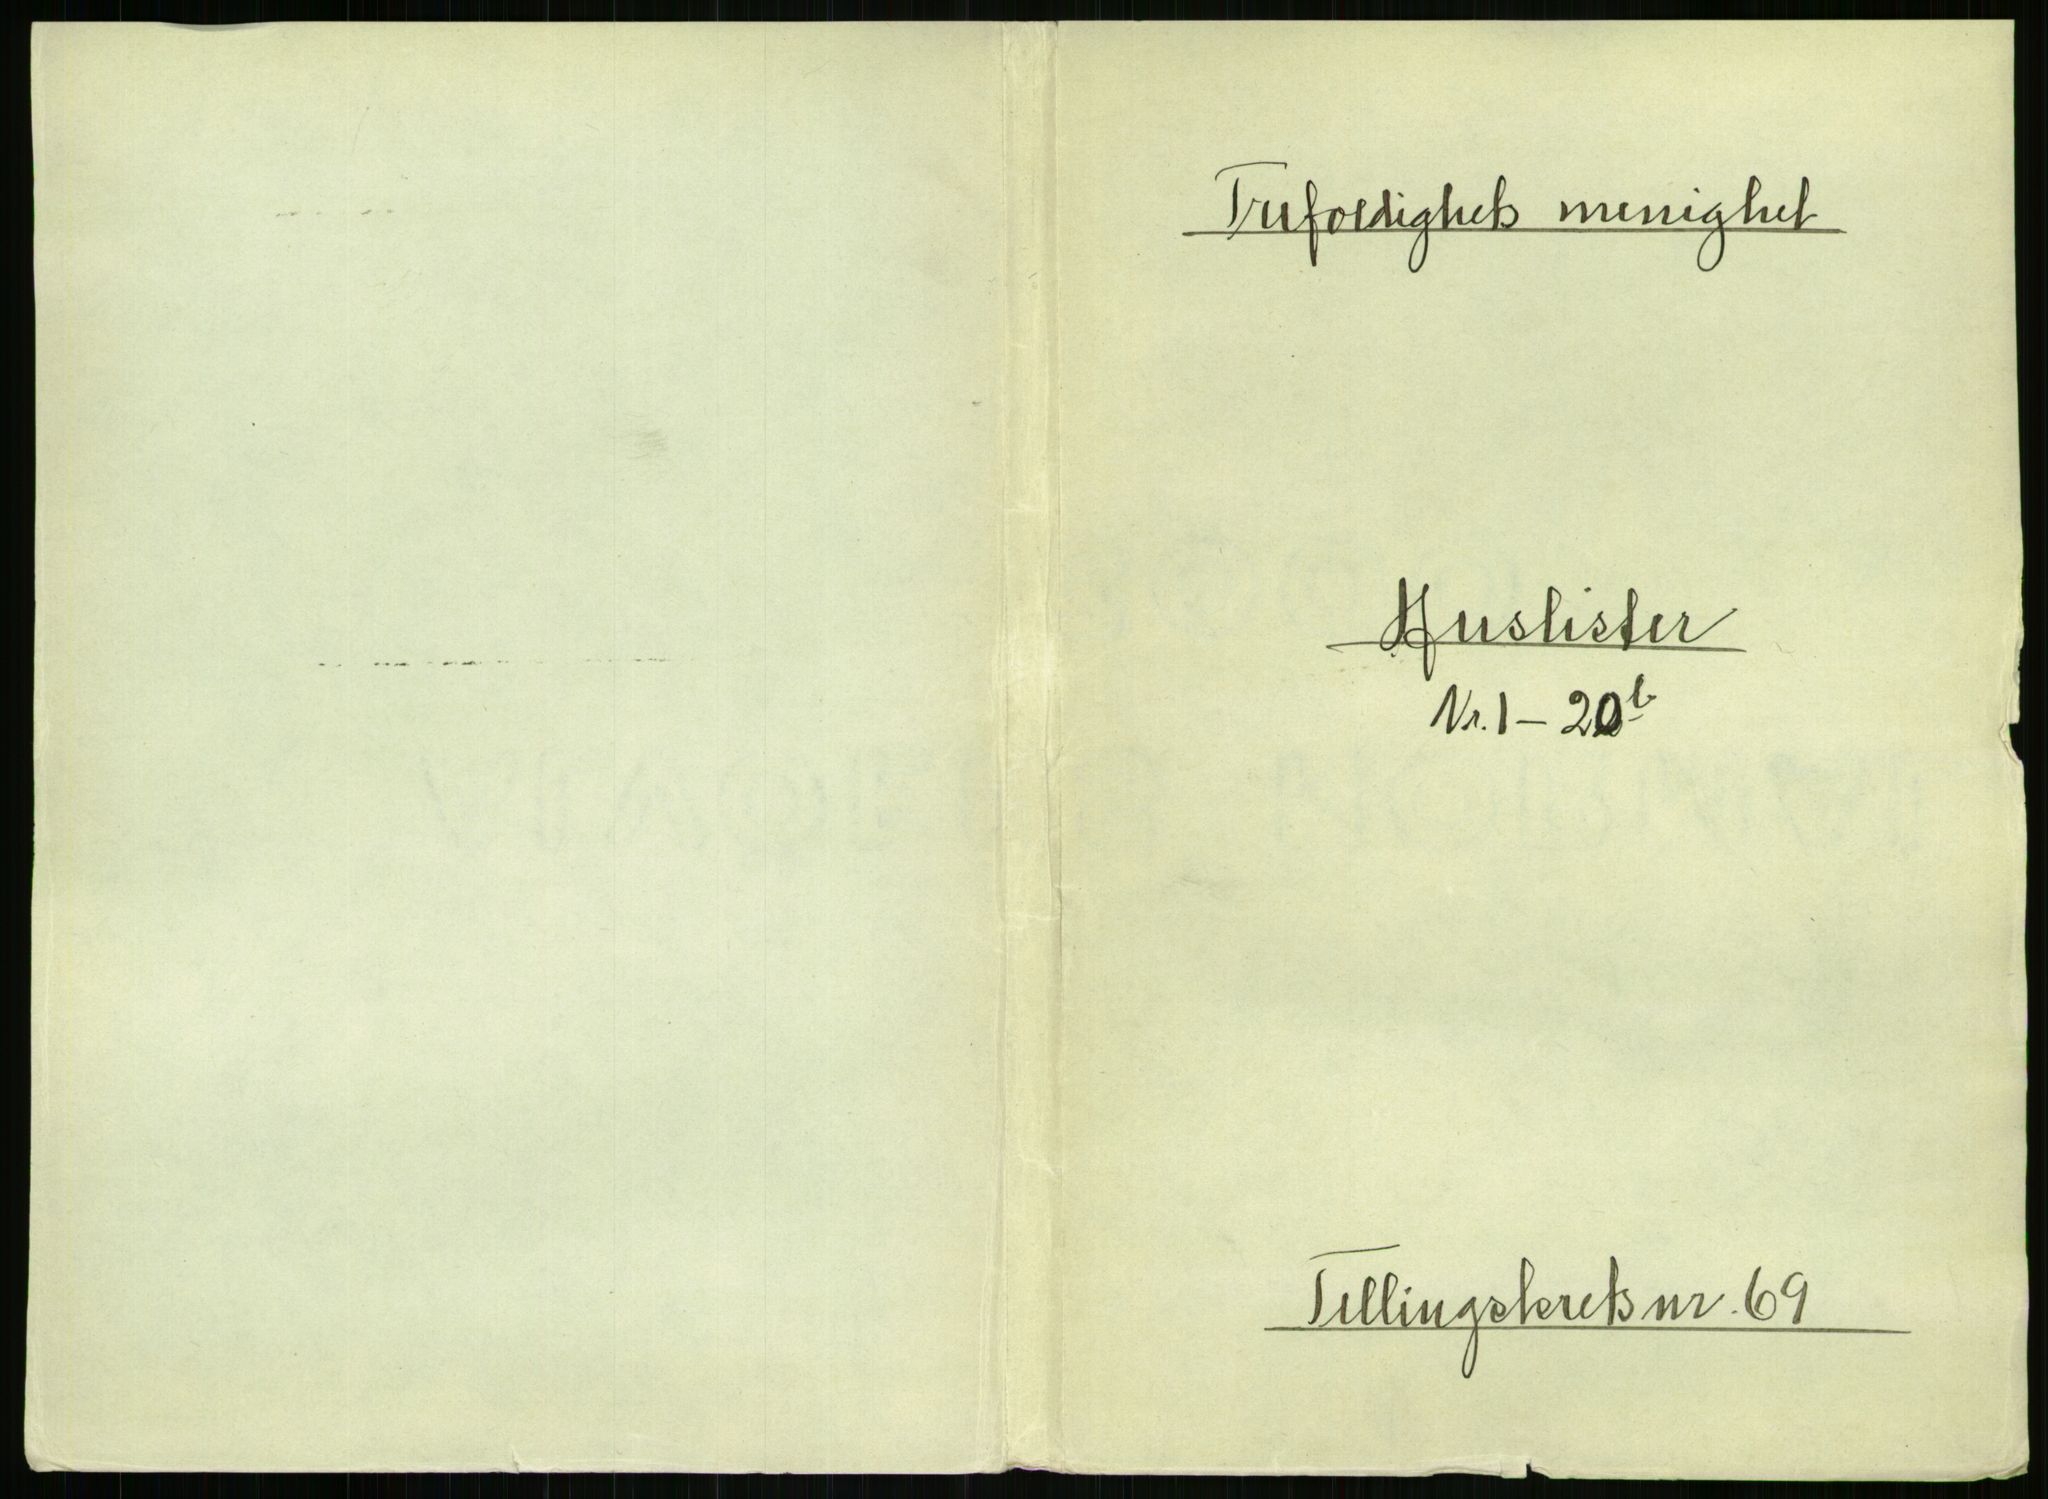 Trefoldighets menighet
Huslister
Nr. 1 – 20b
Tellingskrets nr. 69